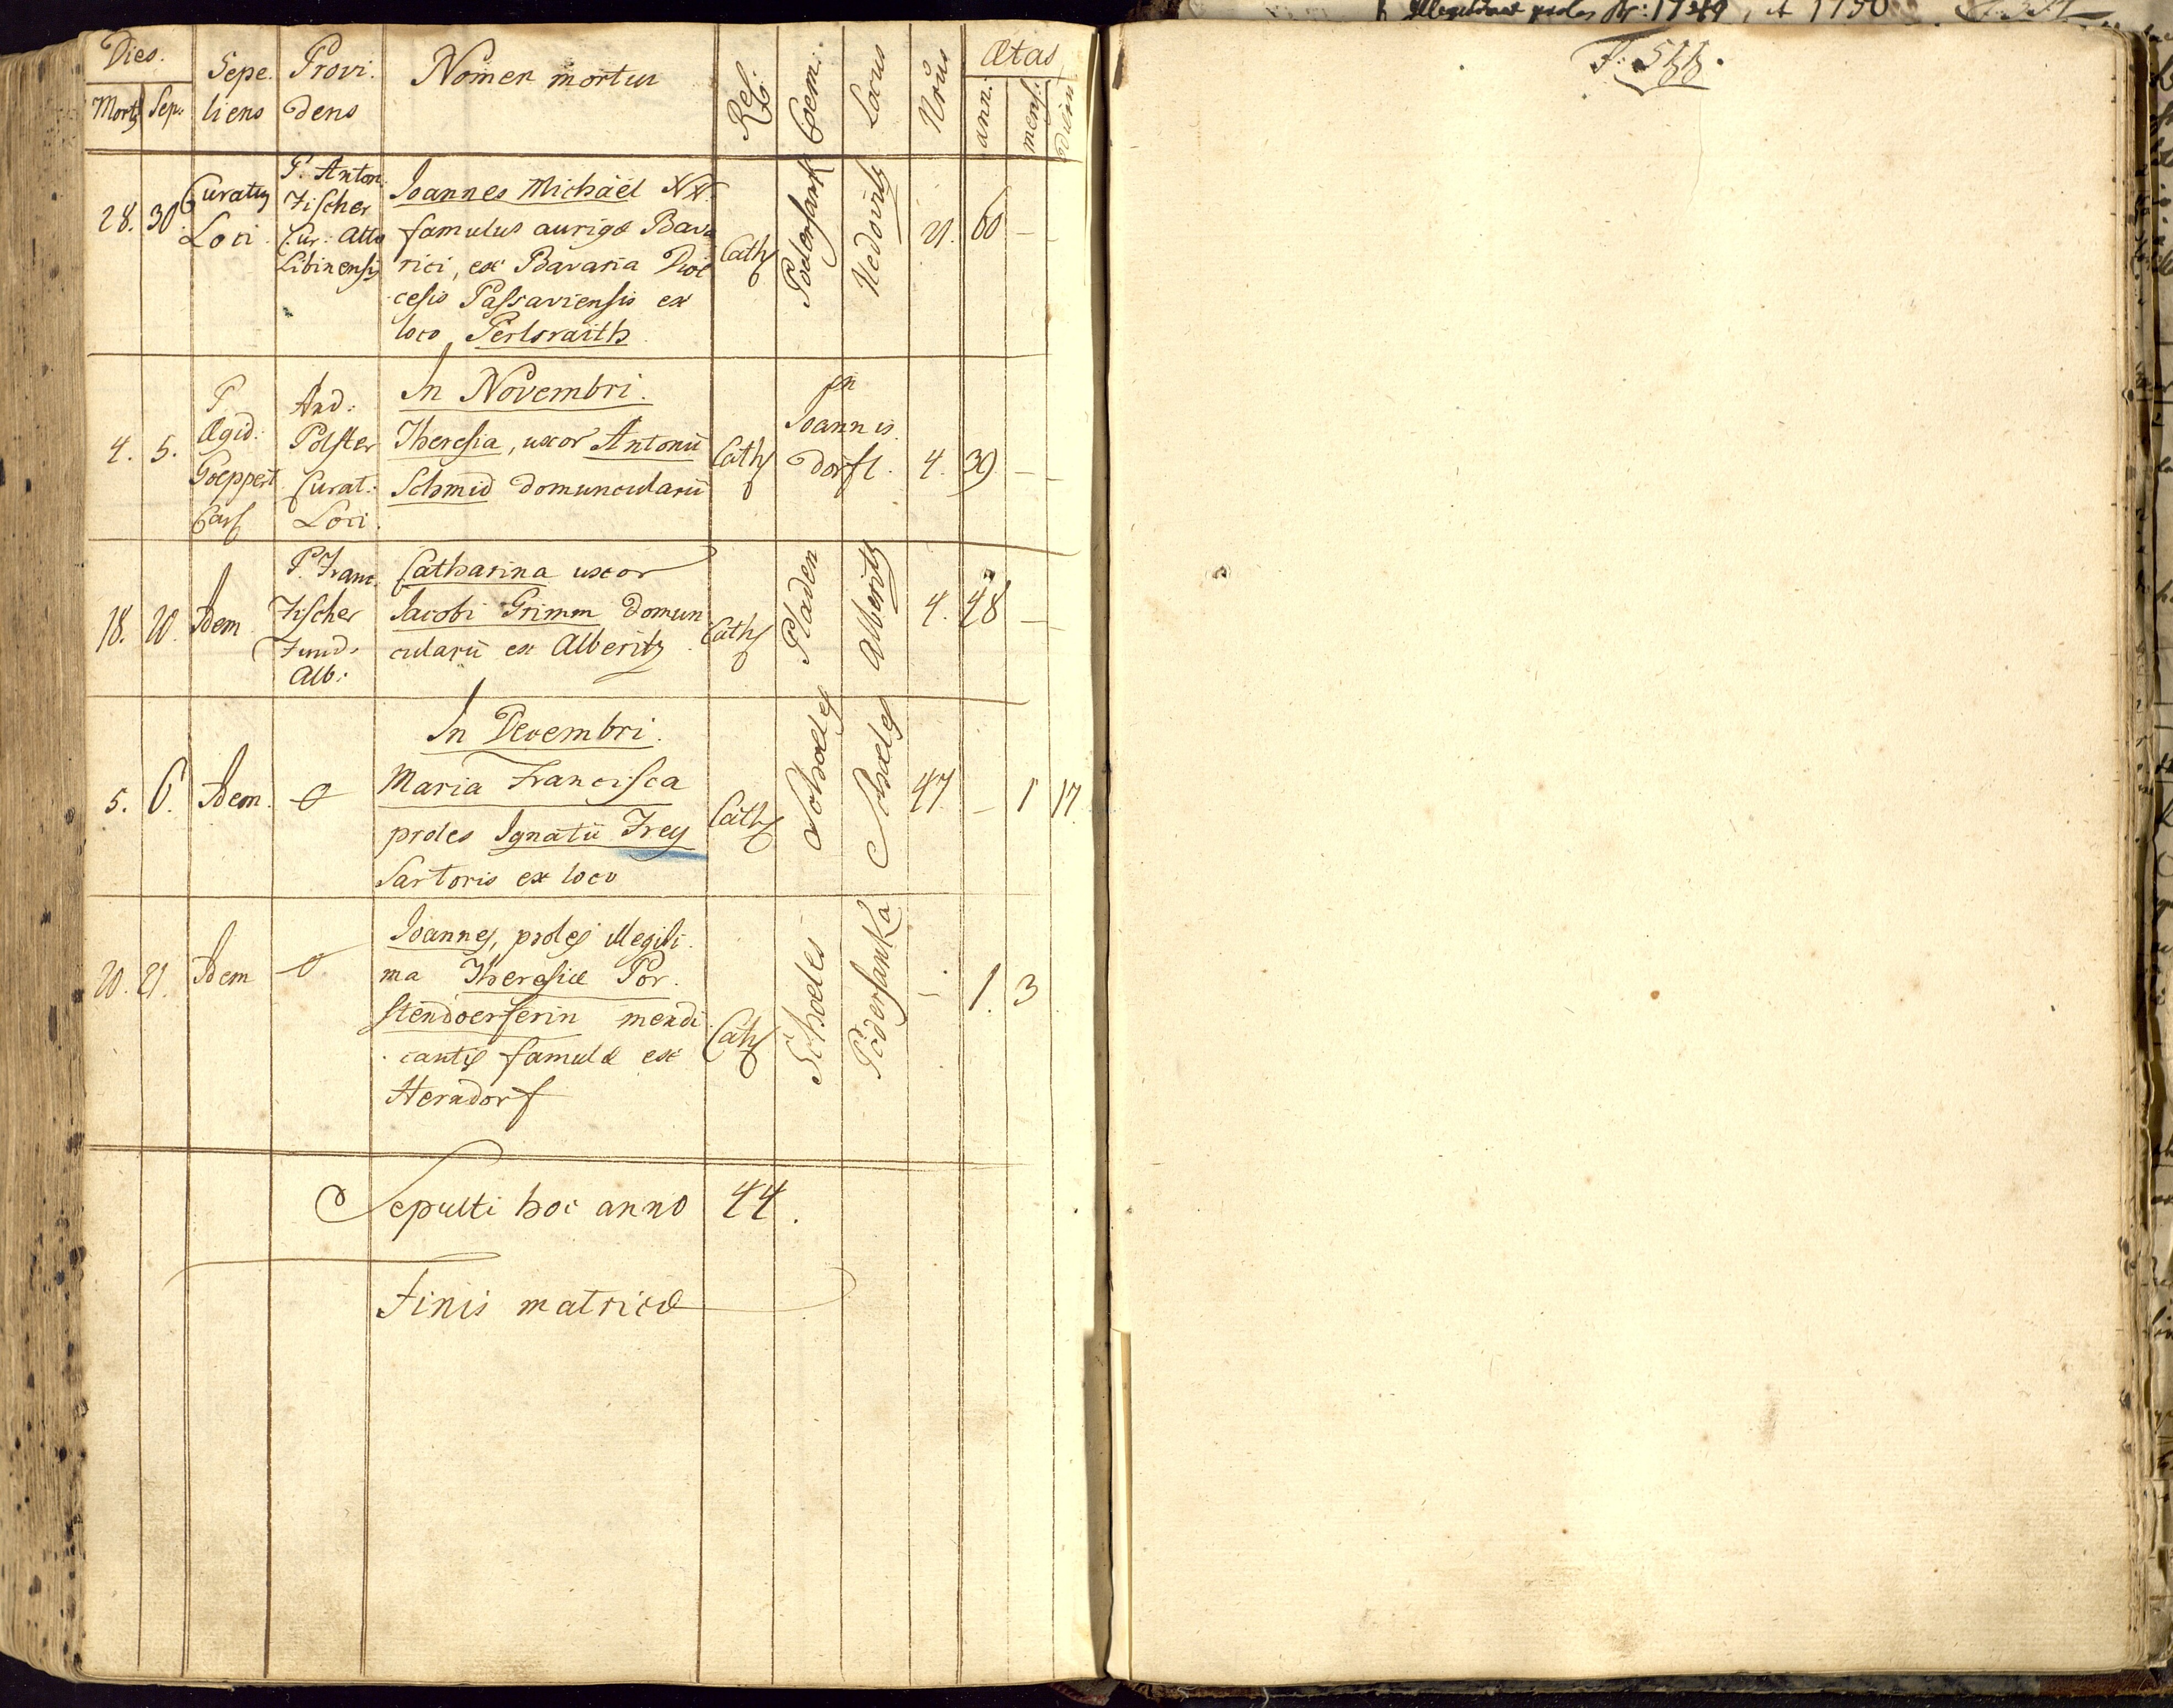 Dies.
Mort. Sep. Sepe. liens Provi. dens Nomen mortui Rel: Coem: Locus Nrus Ætas
ann: mens: dierum
28. 30. Curatus Loci P. Anton. Fischer Cur: Alto Libinensis
Joannes Michael NN.
famulus aurigæ Bava
rici, ex Bavaria Dioe
cesis Passaviensis ex
loco Perlsraith
Cath Podersank Nedovitz 21. 60 – –
In Novembri.
4. 5. P. Ægid: Goeppert Cas And: Polster Curat: Loci.
Theresia, uxor Antonii
Schmid domuncularii
Cath in Joannis. dorf l. 4. 39 – –
18. 20. Idem P. Franc. Fischer Fund. Alb:
Catharina uxor
Jacobi Grimm domun
cularii ex Alberitz
Cath Pladen Alberitz 4. 48 – –
In Decembri.
5. 6. Idem. o
Maria Francisca
proles Ignatii Frey
Sartoris ex loco
Cath Schoeles Schoeles 47 – 1 17.
20. 21. Idem o
Joannes, proles illegiti.
ma Theresiæ Por.
stendoerferin mendi
cantis famulæ ex
Heradorf
Cath Schoeles Podersanka – 1. 3
Sepulti hoc anno 44.
Finis matricæ
F: 544.
Illegitimae proles
1750